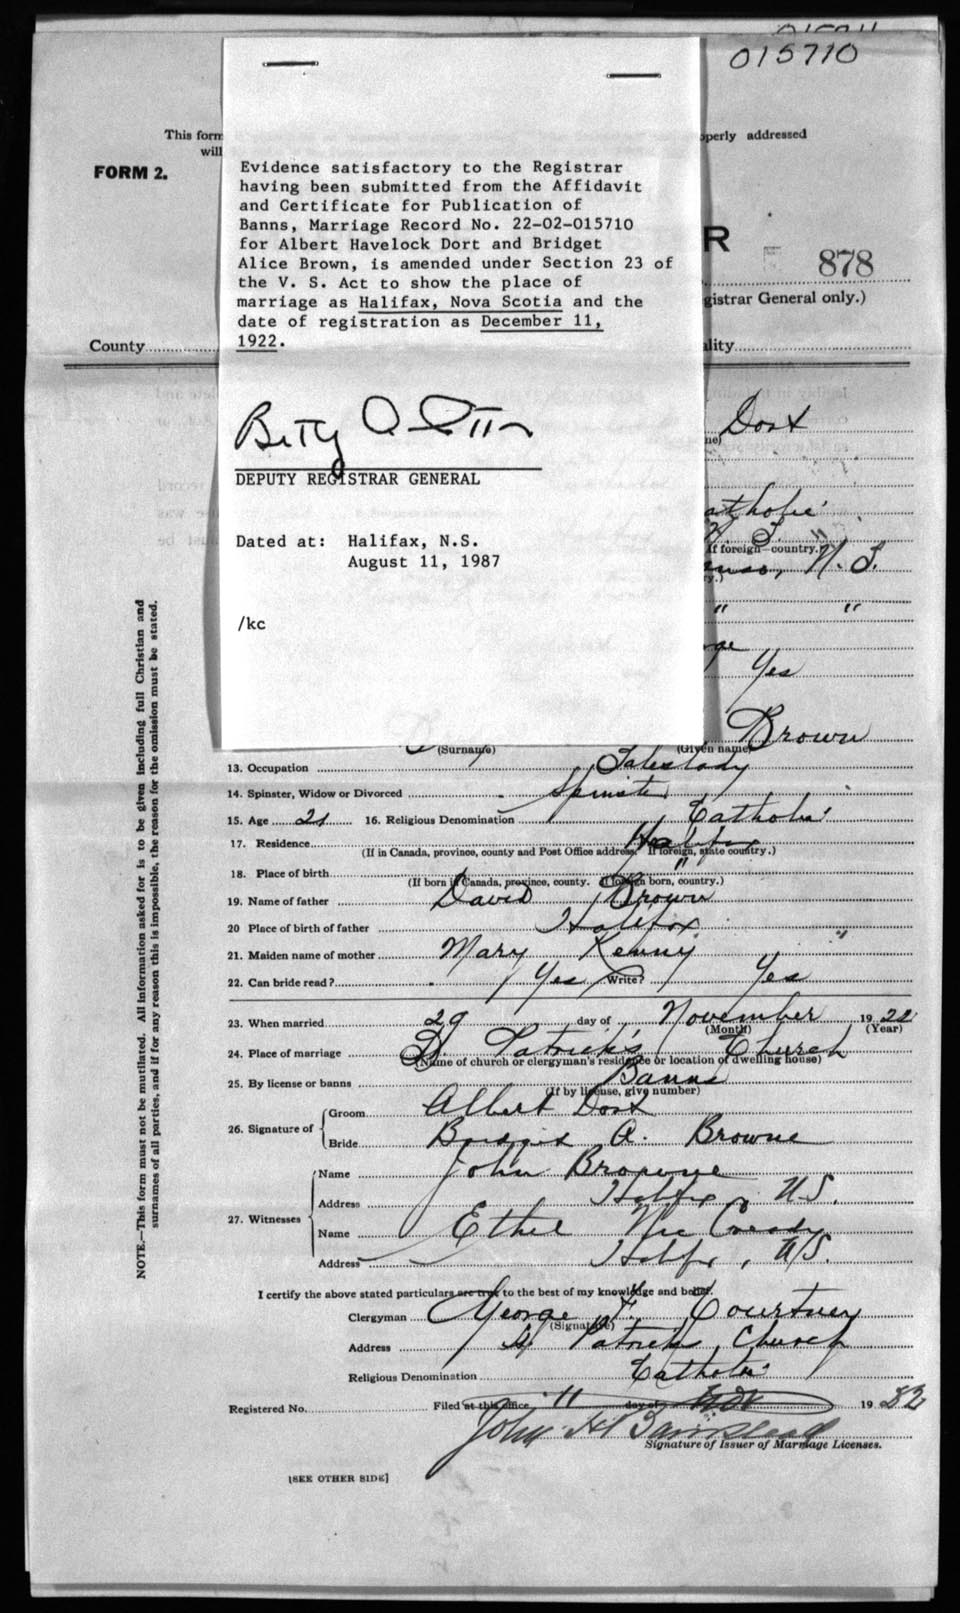 015710
This form
perly addressed
will
FORM 2.
R
878
gistrar General only.)
County
lity
Evidence satisfactory to the Registrar
having been submitted from the Affidavit
and Certificate for Publication of
Banns, Marriage Record No. 22-02-015710
for Albert Havelock Dort and Bridget
Alice Brown, is amended under Section 23 of
the V. S. Act to show the place of
marriage as Halifax, Nova Scotia and the
date of registration as December 11,
1922.
DEPUTY REGISTRAR GENERAL
Dated at: Halifax, N.S.
August 11, 1987
/kc
Dort
me)
atholic
If foreign country.)
N. S.
ry.)
" "
rge
Yes
Brown
(Surname) (Given name)
13. Occupation Saleslady
14. Spinster, Widow or Divorced Spinster
15. Age 21 16. Religious Denomination Catholic
17. Residence Halifax
(If in Canada, province, county and Post Office address. If foreign, state country.)
18. Place of birth "
(If born in Canada, province, county. If foreign born, country.)
19. Name of father David Brown
20 Place of birth of father Halifax
21. Maiden name of mother Mary Kenny "
22. Can bride read? Yes Write? Yes
23. When married 29 day of November 1922
(Month) (Year)
24. Place of marriage St. Patrick's Church
(Name of church or clergyman's residence or location of dwelling house)
25. By license or banns Banns
(If by license, give number)
26. Signature of Groom Albert Dort
Bride Bridgid A. Browne
27. Witnesses Name John Browne
Address Halifax, N.S.
Name Ethel
Address Halifax, N.S.
I certify the above stated particulars are true to the best of my knowledge and belief.
Clergyman George F. Courtney
(Signature)
Address St Patrick's Church
Religious Denomination Catholic
Registered No. Filed at this office 11 day of Nov 19
John H Barnstead
Signature of Issuer of Marriage Licenses.
[SEE OTHER SIDE]
NOTE.—This form must not be mutilated. All information asked for is to be given including full Christian and
surnames of all parties, and if for any reason this is impossible, the reason for the omission must be stated.